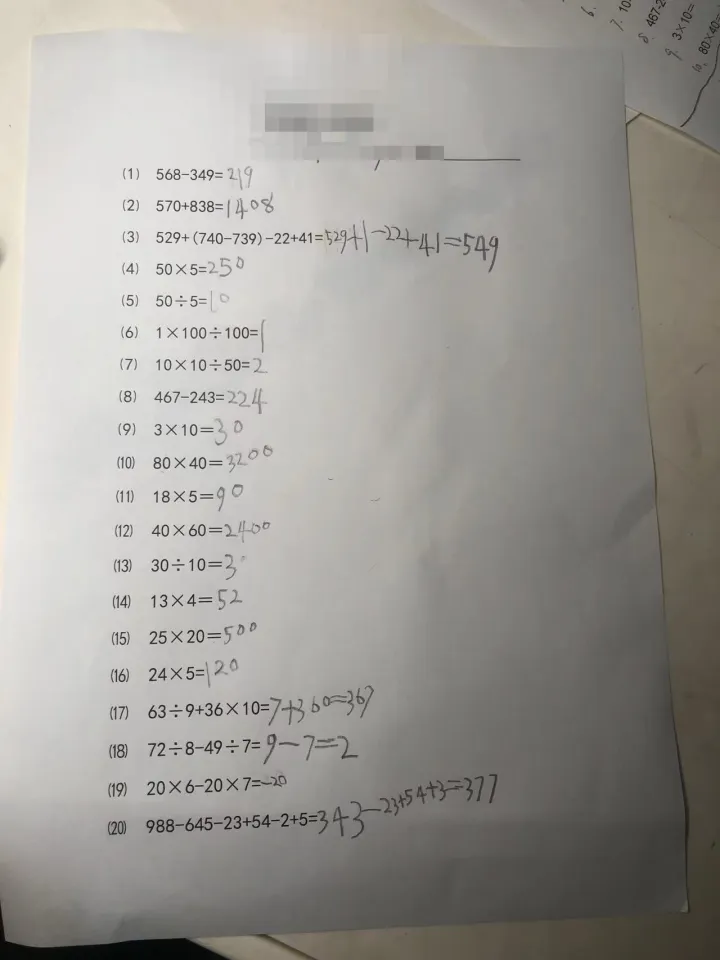 6.
7. 10
8. 467-2
9. 3×10=
10. 80×40=
(1) 568-349=219
(2) 570+838=1408
(3) 529+(740-739)-22+41=529+1-22+41=549
(4) 50×5=250
(5) 50÷5=10
(6) 1×100÷100=1
(7) 10×10÷50=2
(8) 467-243=224
(9) 3×10=30
(10) 80×40=3200
(11) 18×5=90
(12) 40×60=2400
(13) 30÷10=3
(14) 13×4=52
(15) 25×20=500
(16) 24×5=120
(17) 63÷9+36×10=7+360=367
(18) 72÷8-49÷7=9-7=2
(19) 20×6-20×7=-20
(20) 988-645-23+54-2+5=343-23+54+3=377